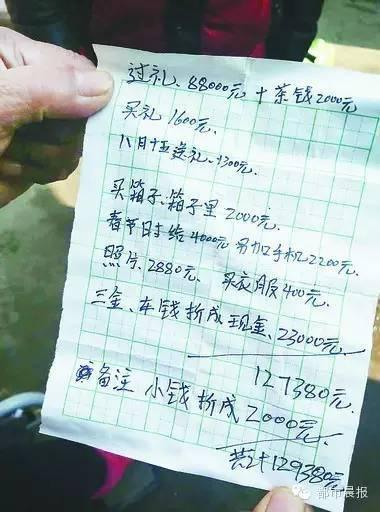 过礼、88000元 + 茶钱2000元
买礼 1600元.
八月十五送礼、1300元.
买箱子、箱子里 2000元.
春节日时给4000元 另加手机2200元.
照片、2880元、 买衣服400元.
三金、车钱折成现金、23000元.
127380元.
备注 小钱折成2000元.
共计129380元
都市晨报